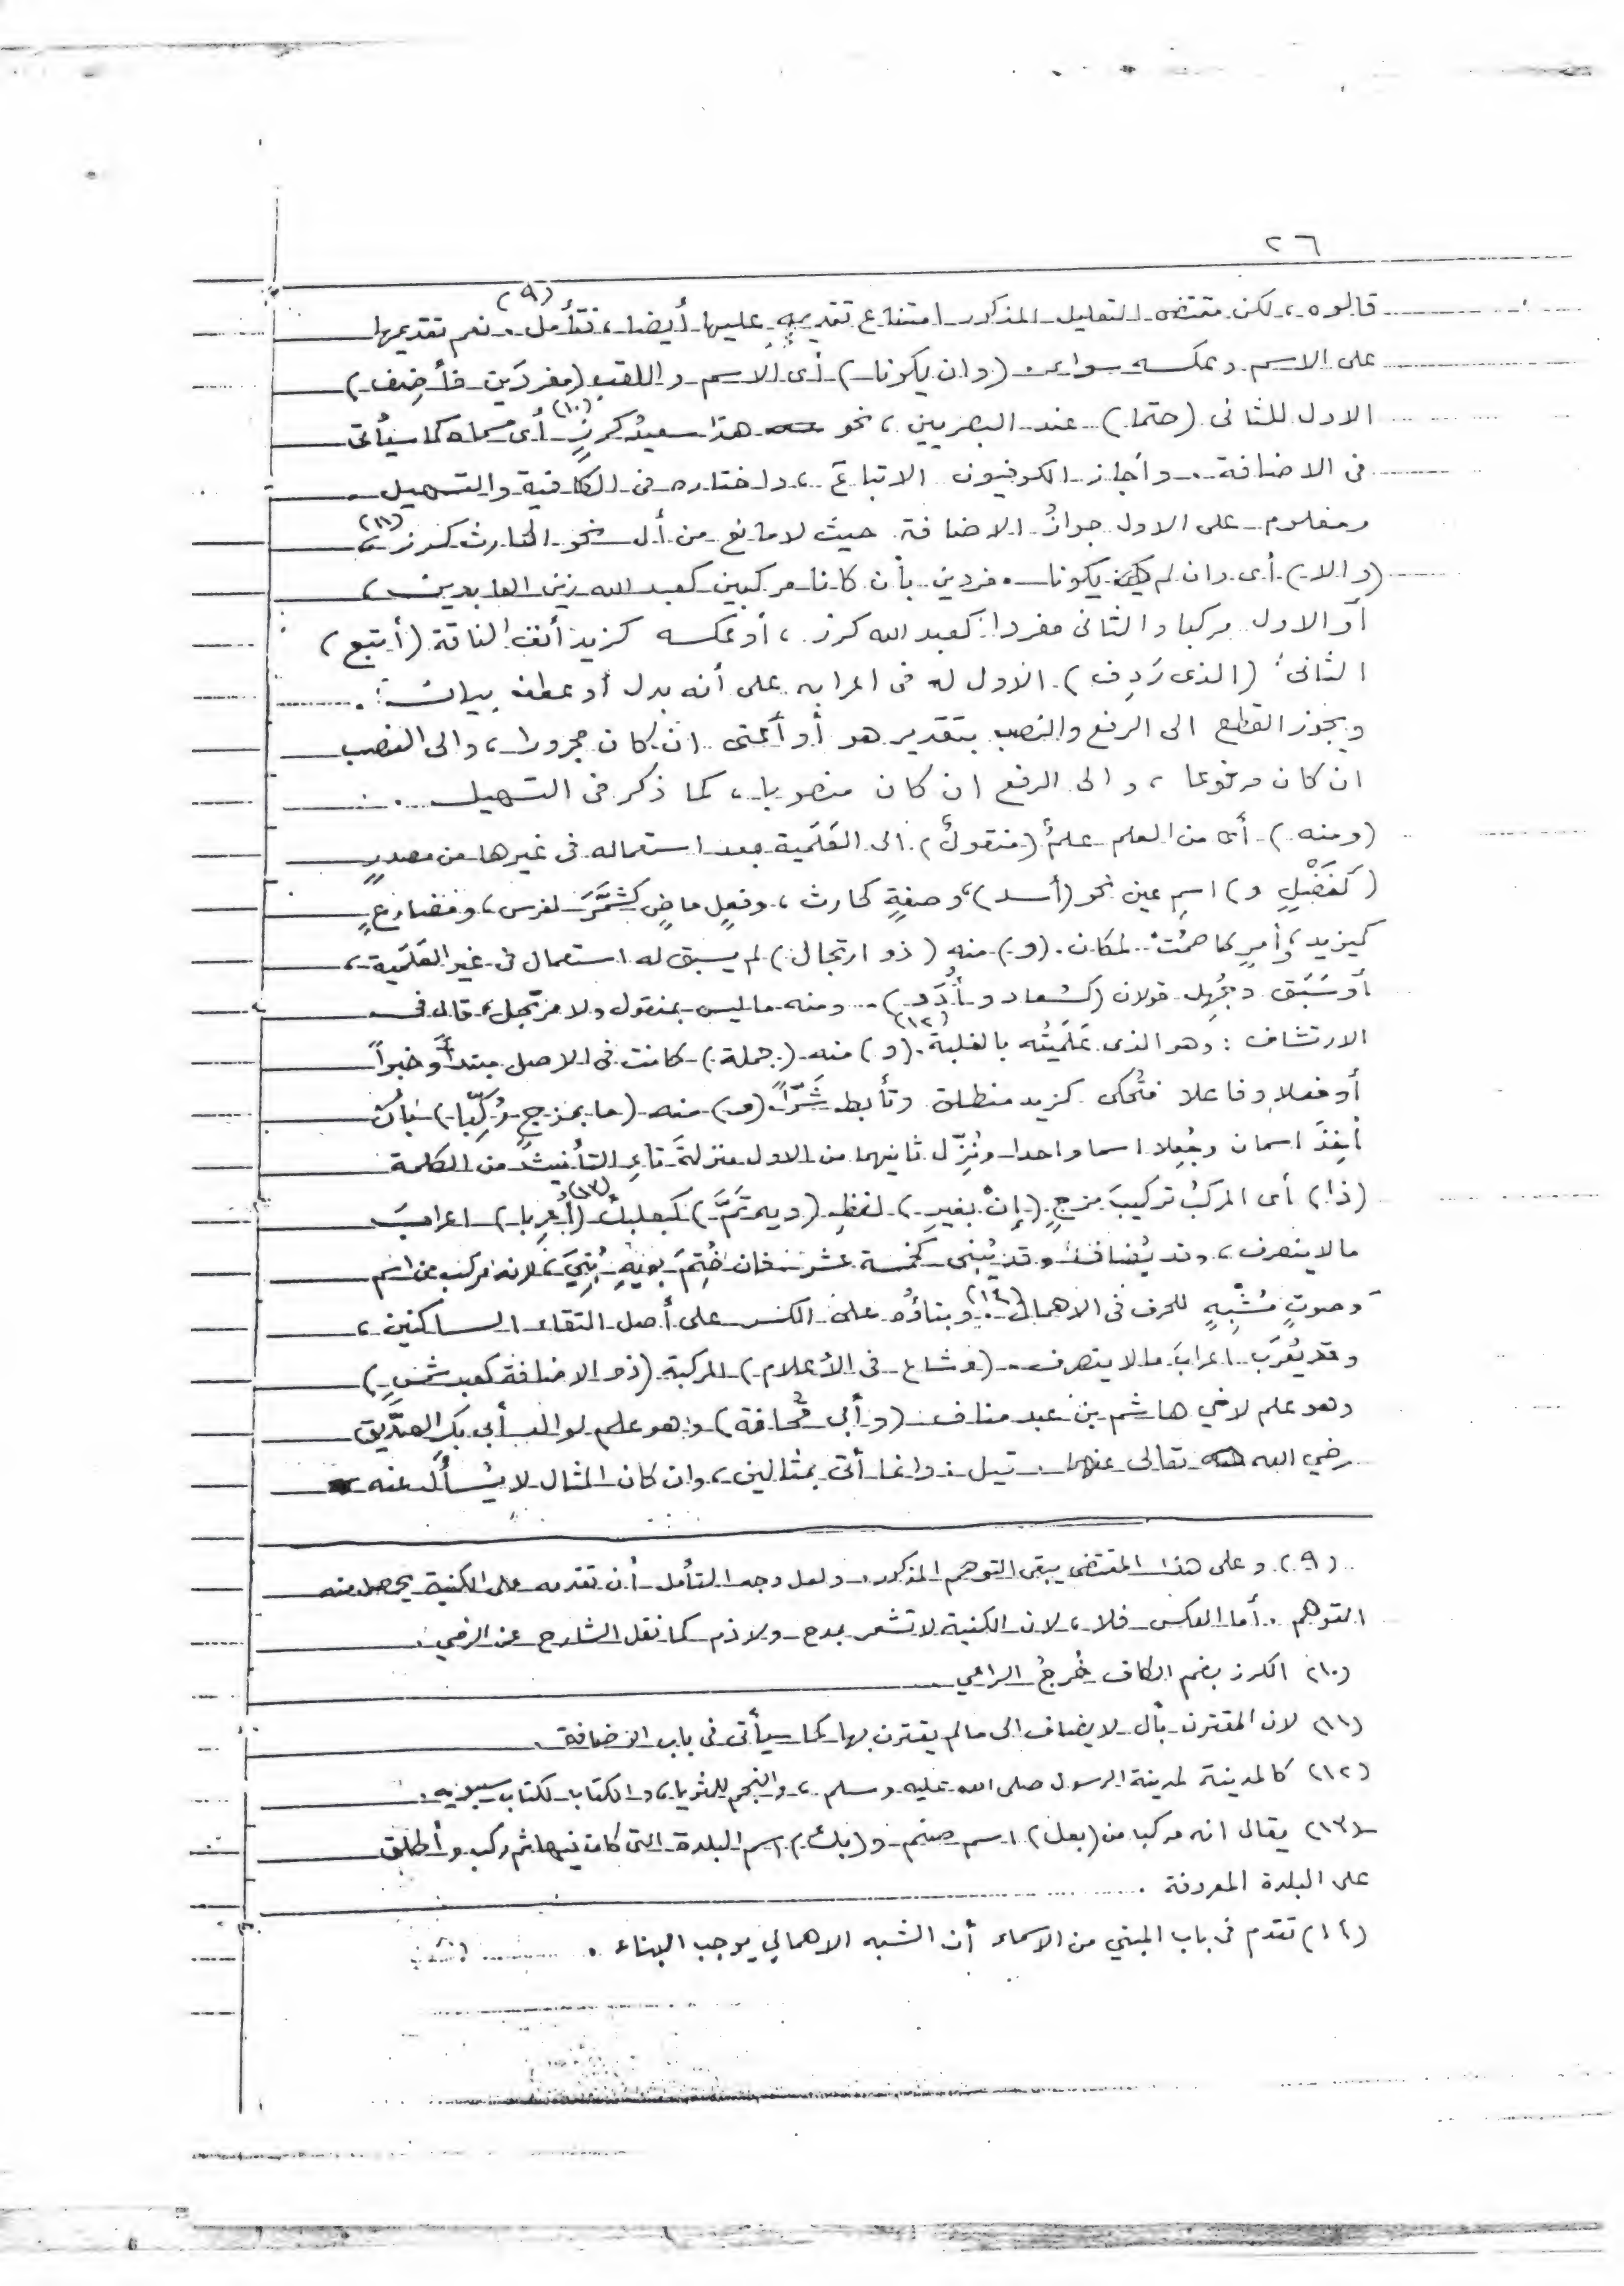 ٢٦
قالوه ، لكن مقتضى التعليل المذكور امتناع تقديمه عليها أيضا ، فتأمل (٩) . نعم تقديمها
على الاسم وعكسه سواء . (وان يكونا) أى الاسم واللقب (مفردَين فأضِف)
الاول للثانى (حتما) عند البصريين ، نحو هذا سعيدُ كرزٍ (١٠) أى مسماه كما سيأتى
فى الاضافة . وأجاز الكوفيون الاتباعَ ، واختاره فى الكافية والتسهيل .
ومعلوم على الاول جوازُ الاضافة حيث لا مانع من أل نحو الحارث كرز (١١) ،
(والا) أى وان لم يكونا مفردين بأن كانا مركبين كعبد الله زين العابدين ،
أو الاول مركبا والثانى مفردا كعبد الله كرز ، أو عكسه كزيد أنف الناقة (أتبع)
الثانى (الذى رَدِف) الاول له فى اعرابه على أنه بدل أو عطف بيان .
ويجوز القطع الى الرفع والنصب بتقدير هو أو أعنى ان كان مجرورا ، والى النصب
ان كان مرفوعا ، والى الرفع ان كان منصوبا ، كما ذكر فى التسهيل .
(ومنه) أى من العلم علمٌ (منقولٌ) الى العَلَمية بعد استعماله فى غيرها من مصدرٍ
(كفَضْلٍ و) اسمِ عين نحو (أسد) ، وصفةٍ كحارث ، وفعلٍ ماضٍ كشمَّرَ لفرس ، ومضارعٍ
كيزيد ، وأمرٍ كاصمُتْ لمكان . (و) منه (ذو ارتجال) لم يسبق له استعمال فى غير العَلَمية ،
أو سَبَق وجُهِل قولان (كسُعاد وأُدَد) . ومنه ما ليس بمنقول ولا مرتجل ، قال فى
الارتشاف : وهو الذى عَلَميتُه بالغلبة (١٢) . (و) منه (جملة) كانت فى الاصل مبتدأً وخبراً
أو فعلا وفاعلا فتُحكى كزيد منطلق وتأبط شَرّاً (و) منه (ما بمزجٍ رُكِّبا) بأن
أُخِذَ اسمان وجُعِلا اسما واحدا ونُزِّل ثانيهما من الاول منزلةَ تاءِ التأنيث من الكلمة
(ذا) أى المركبُ تركيبَ مزجٍ (إنْ بغيرِ) لفظِ (ويه تَمَّ) كبعلبكَّ (١٣) (أُعرِبا) اعرابَ
مالا ينصرف ، وقد يُضاف ، وقد يُبنى كخمسة عشر فان خُتِمَ بويهِ بُنِيَ ، لانه مركب من اسم
وصوتٍ مُشْبِهٍ للحرف فى الاهمال (١٤) . وبناؤه على الكسر على أصل التقاء الساكنين ،
وقد يُعرَب اعرابَ مالا ينصرف . (وشاع فى الأعلام) المركبة (ذو الاضافة كعبد شمسِ)
وهو علم لاخي هاشم بن عبد مناف (وأبى قُحافة) وهو علم لوالد أبي بكر الصدّيق
رضي الله تعالى عنهما . قيل : وانما أتى بمثالين ، وان كان المثال لا يُسأَل عنه
(٩) وعلى هذا المقتضى يبقى التوهم المذكور . ولعل وجه التأمل أن تقدمه على الكنية يحصل منه
التوهم . أما العكس فلا ، لان الكنية لا تشعر بمدح ولا ذم كما نقل الشارح عن الرضي .
(١٠) الكرز بضم الكاف خُرجُ الراعي
(١١) لان المقترن بأل لا يضاف الى مالم يقترن بها كما سيأتى فى باب الاضافة .
(١٢) كالمدينة لمدينة الرسول صلى الله عليه وسلم ، والنجم للثريا ، والكتاب لكتاب سيبويه .
(١٣) يقال انه مركبا من (بعل) اسم صنم و (بك) اسم البلدة التى كان فيها ثم ركب وأطلق
على البلدة المعروفة .
(١٤) تقدم فى باب المبني من الاسماء أن الشبه الاهمالي يوجب البناء .